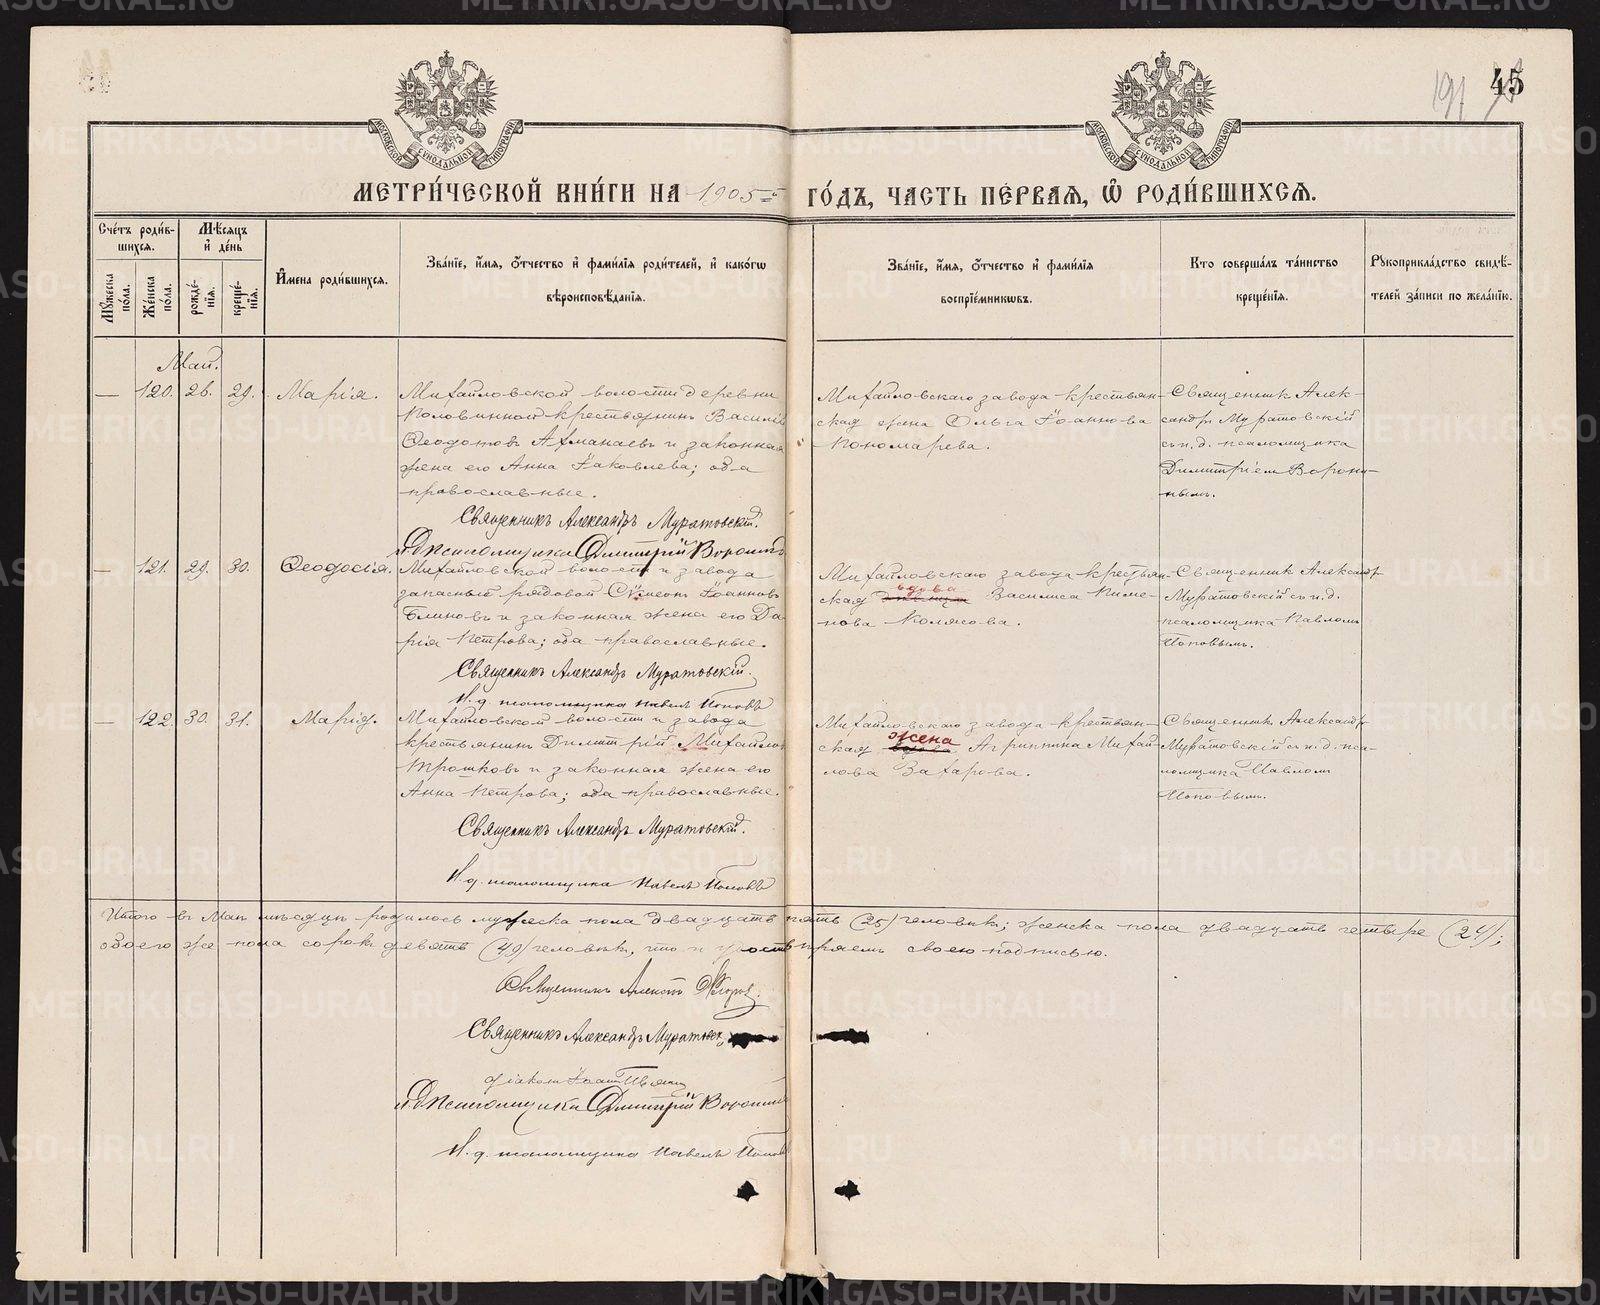 191 45
МОСКОВСКОЙ СУНОДАЛЬНОЙ ТИПОГРАФИИ
МОСКОВСКОЙ СУНОДАЛЬНОЙ ТИПОГРАФИИ
МЕТРИ́ЧЕСКОЙ КНИ́ГИ НА 1905 ГО́ДЪ, ЧАСТЬ ПЕ́РВАЯ, Ѡ РОДИ́ВШИХСЯ.
Сче́тъ роди́в-
шихся.
Мѣ́сяцъ
и де́нь
Му́жеска
по́ла.
Же́нска
по́ла.
рожде́-
нія.
креще́-
нія.
Имена роди́вшихся.
Зва́ніе, и́мя, о́тчество и фами́лія роди́телей, и како́гѡ
вѣроисповѣ́данія.
Зва́ніе, и́мя, о́тчество и фами́лія
воспріе́мникѡвъ.
Кто соверша́лъ та́инство
креще́нія.
Рукоприкла́дство свидѣ́-
телей за́писи по жела́нію.
Май.
— 120. 26. 29. Марія.
Михайловской волости деревни
Половинной крестьянинъ Василій
Ѳеодотовъ Ахманаевъ и законная
жена его Анна Іаковлева; оба
православные.
Священникъ Александръ Муратовскій.
И. д. псаломщика Димитрій Воронинъ
Михайловскаго завода крестьян-
ская жена Ольга Іоаннова
Пономарева.
Священникъ Алек-
сандръ Муратовскій
съ и. д. псаломщика
Димитріемъ Ворони-
нымъ.
— 121. 29. 30. Ѳеодосія.
Михайловской волости и завода
запасный рядовой Сѵмеонъ Іоанновъ
Блиновъ и законная жена его Да-
рія Петрова; оба православные.
Священникъ Александръ Муратовскій.
И. д. псаломщика Павелъ Поповъ
Михайловскаго завода крестьян-
вдова
ская девица Василиса Пиме-
нова Колясова.
Священникъ Александръ
Муратовскій съ и. д.
псаломщика Павломъ
Поповымъ.
— 122. 30. 31. Марія.
Михайловской волости и завода
крестьянинъ Димитрій Михайлов
Трошковъ и законная жена его
Анна Петрова; оба православные.
Священникъ Александръ Муратовскій.
И. д. псаломщика Павелъ Поповъ
Михайловскаго завода крестьян-
жена
ская вдова Агриппина Михай-
лова Захарова.
Священникъ Александръ
Муратовскій съ и. д. пса-
ломщика Павломъ
Поповымъ.
Итого въ Маѣ мѣсяцѣ родилось мужеска пола двадцать пять (25) человѣкъ; женска пола двадцать четыре (24);
обоего же пола сорокъ девять (49) человѣкъ, что и удостовѣряемъ своею подписью.
Священникъ
Священникъ Александръ Муратовск
діаконъ Іоаннъ
И. д. псаломщика Димитрій Воронинъ
И. д. псаломщика Павелъ Поповъ
METRIKI.GASO-URAL.RU